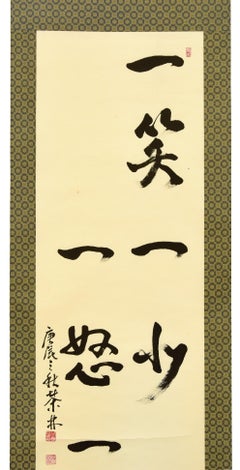 一笑一少
一怒一
庚辰之秋